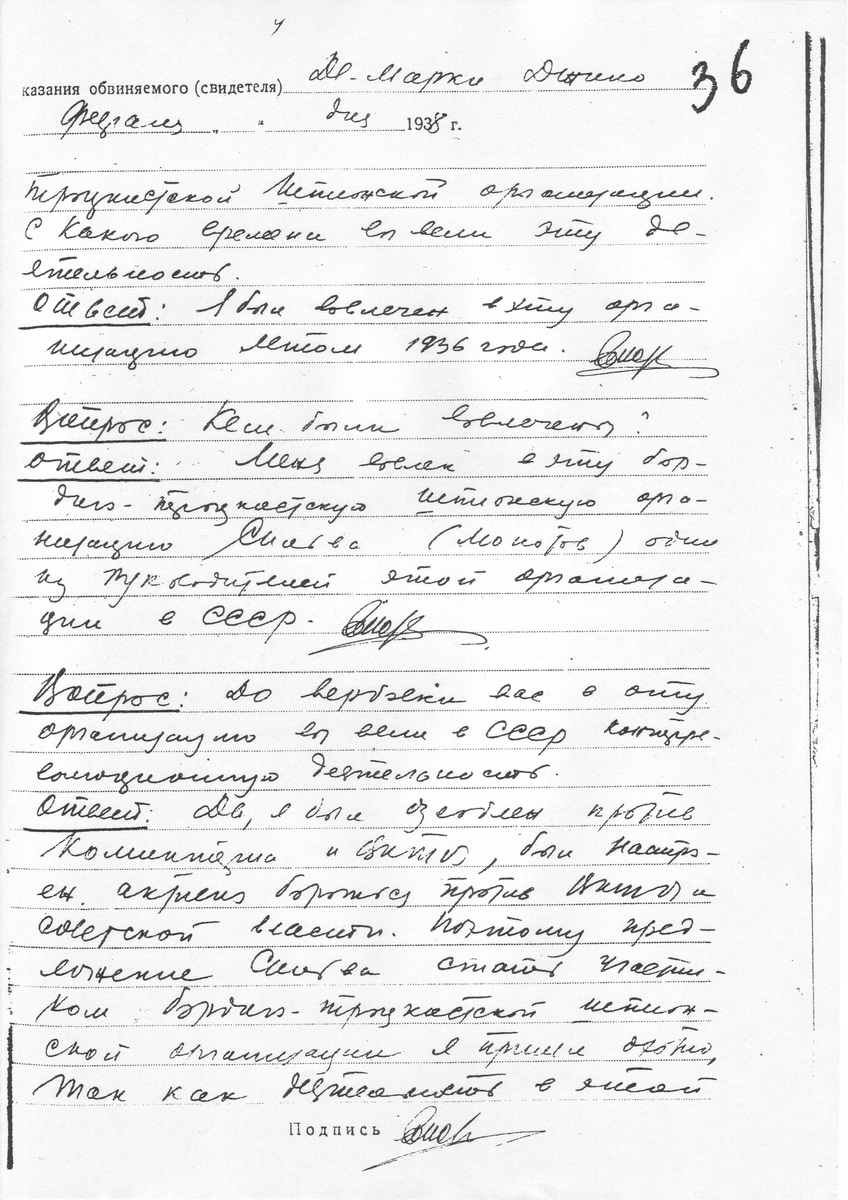 4
36
казания обвиняемого (свидетеля) Де-Марки Джино
Февраля „ “ дня 1938 г.
троцкистской шпионской организации.
С какого времени вы вели эту де-
ятельность.
Ответ: Я был вовлечен в эту орга-
низацию летом 1936 года.
Вопрос: Кем были вовлечены?
Ответ: Меня вовлек в эту бор-
диго-троцкистскую шпионскую орга-
низацию Сильва (Монотов) один
из руководителей этой организа-
ции в СССР.
Вопрос: До вербовки вас в эту
организацию вы вели в СССР контрре-
волюционную деятельность.
Ответ: Да, я был озлоблен против
Коминтерна и ВКП(б), был настро-
ен активно бороться против ВКП(б) и
советской власти. Поэтому пред-
ложение Сильва стать участни-
ком бордиго-троцкистской шпион-
ской организации я принял охотно,
так как деятельность в этой
Подпись